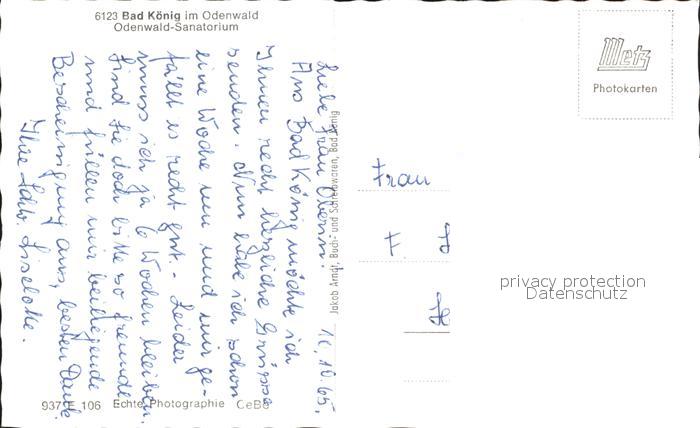 6123 Bad König im Odenwald
Odenwald-Sanatorium
Metz
Photokarten
16.10.65.
Liebe Frau
Aus Bad König möchte ich
Ihnen recht herzliche Grüsse
senden. Nun habe ich schon
eine Woche um und mir ge-
fällt es recht gut. - Leider
muss ich ja 6 Wochen bleiben.
Sind Sie doch bitte so freundl.
und füllen mir beiliegende
Bescheinigung aus, besten Dank
Ihre Schw. Liselotte.
Jakob Arndt, Buch- und Schreibwaren, Bad König
Frau
F.
privacy protection
Datenschutz
106 Echte Photographie CeBe